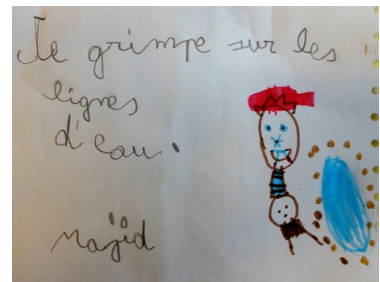 Je grimpe sur les
lignes
d'eau.
Majid